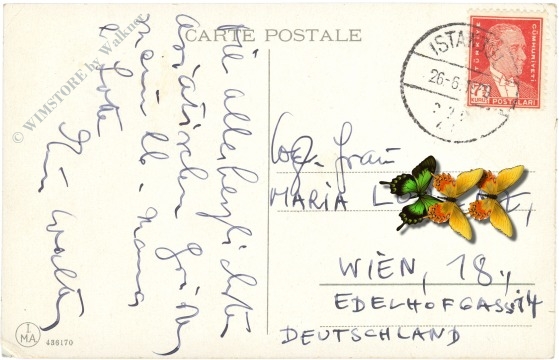 CARTE POSTALE
© WIMSTORE by Walkner
Die allerherzlichsten
asiatischen Grüße,
mein lb. Mama
Dein Walter
TÜRKİYE
CUMHURİYETİ
POSTALARI
ISTAN
26-6
Wg. Frau
MARIA
WIEN, 18.,
EDELHOFGASSE 14
DEUTSCHLAND
I
MA
436170